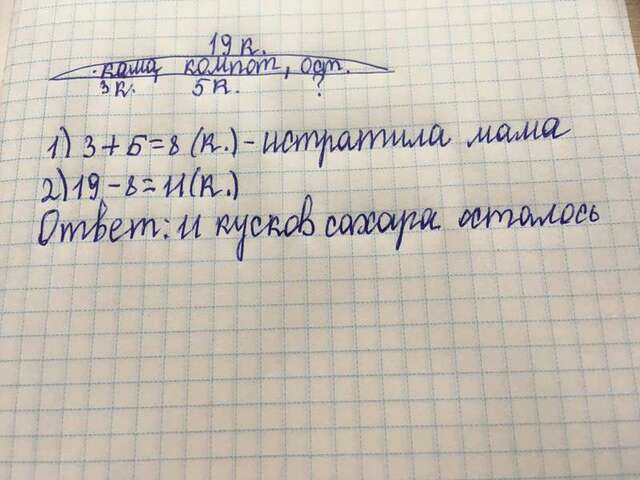 19 к.
каша, компот, ост.
3 к. 5 к. ?
1) 3+5=8 (к.) - истратила мама
2) 19-8=11 (к.)
Ответ: 11 кусков сахара осталось